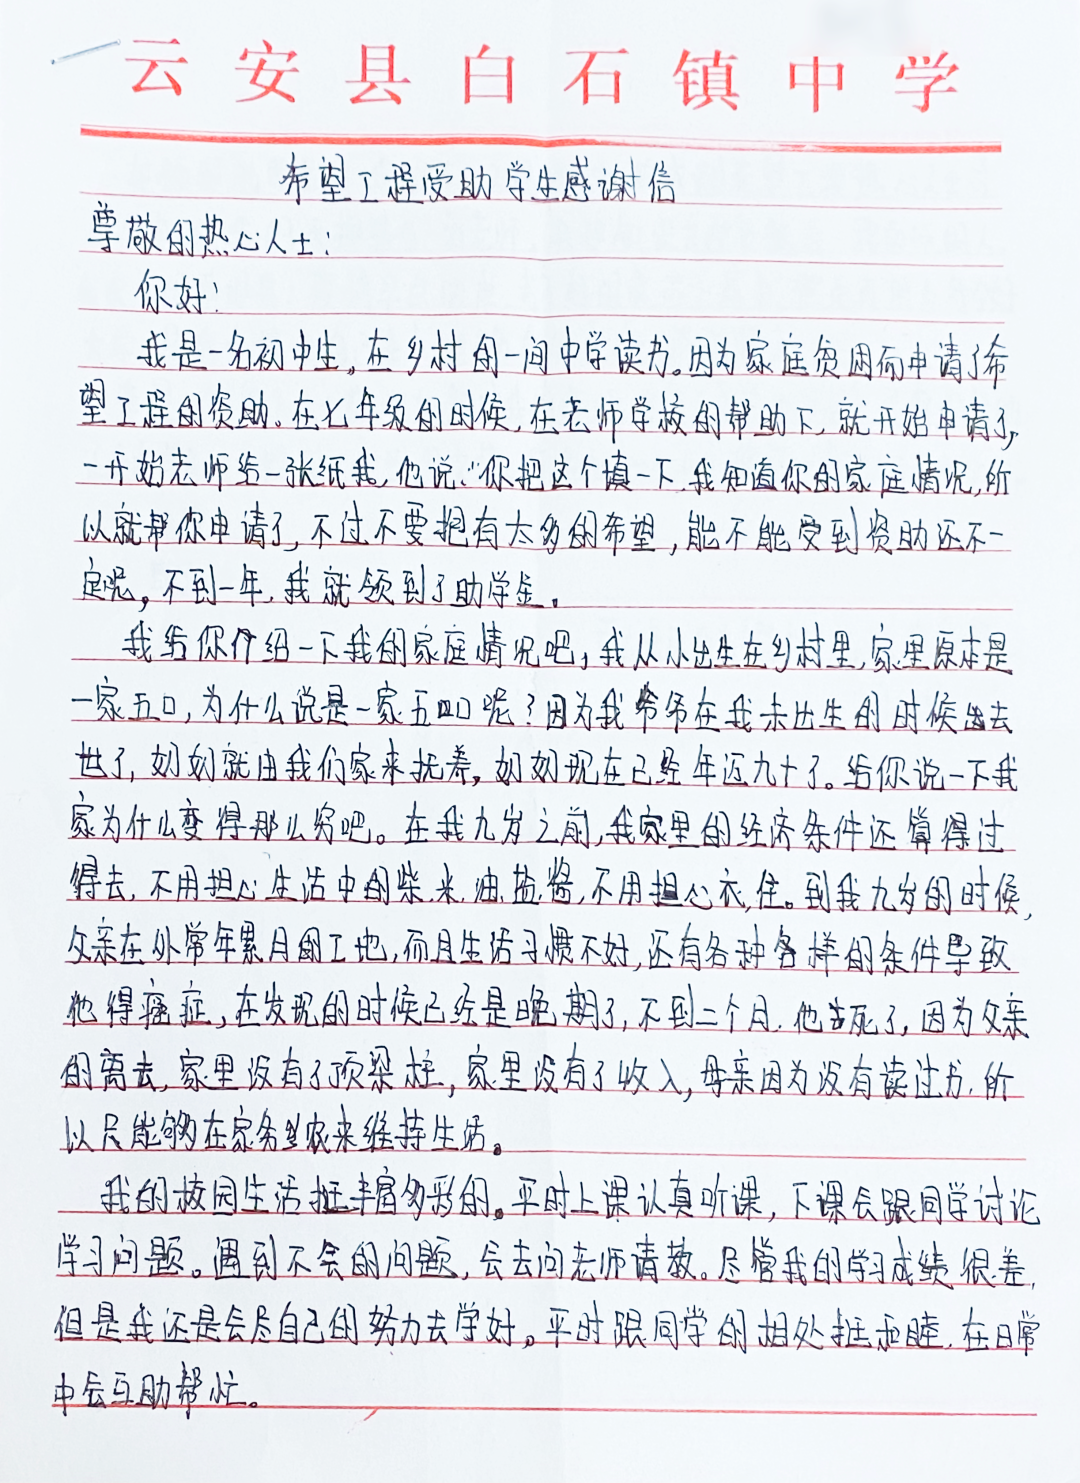 云安县白石镇中学
希望工程受助学生感谢信
尊敬的热心人士:
你好!
我是一名初中生,在乡村的一间中学读书。因为家庭贫困而申请了希
望工程的资助。在七年级的时候,在老师学校的帮助下,就开始申请了,
一开始老师给一张纸我,他说:“你把这个填一下,我知道你的家庭情况,所
以就帮你申请了,不过不要抱有太多的希望,能不能受到资助还不一
定呢,不到一年,我就领到了助学金。
我给你介绍一下我的家庭情况吧,我从小出生在乡村里,家里原本是
一家五口,为什么说是一家五口呢?因为我爷爷在我未出生的时候出去
世了,奶奶就由我们家来抚养,奶奶现在已经年迈九十了。给你说一下我
家为什么变得那么穷吧。在我九岁之前,我家里的经济条件还算得过
得去,不用担心生活中的柴.米.油.盐.酱,不用担心衣,住。到我九岁的时候,
父亲在外常年累月的工地,而且生活习惯不好,还有各种各样的条件导致
他得癌症,在发现的时候已经是晚期了,不到二个月.他去死了,因为父亲
的离去,家里没有了顶梁柱,家里没有了收入,母亲因为没有读过书.所
以只能够在家务农来维持生活。
我的校园生活挺丰富多彩的。平时上课认真听课,下课会跟同学讨论
学习问题。遇到不会的问题,会去问老师请教。尽管我的学习成绩很差,
但是我还是会尽自己的努力去学好。平时跟同学的相处挺和睦.在日常
中会互助帮忙。